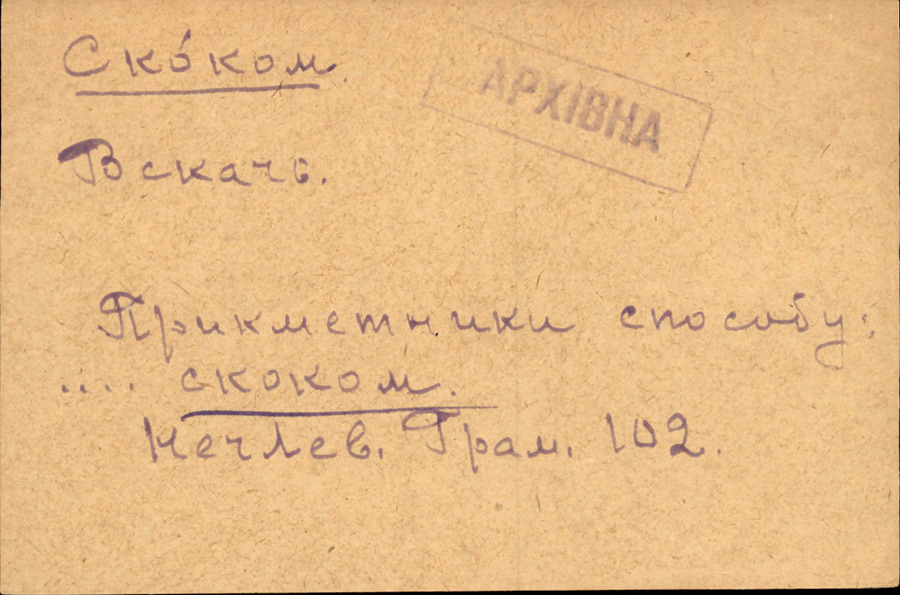 Ско́ком.
АРХІВНА
Вскачь.
Прикметники способу:
.... скоком.
НечЛев. Грам. 102.